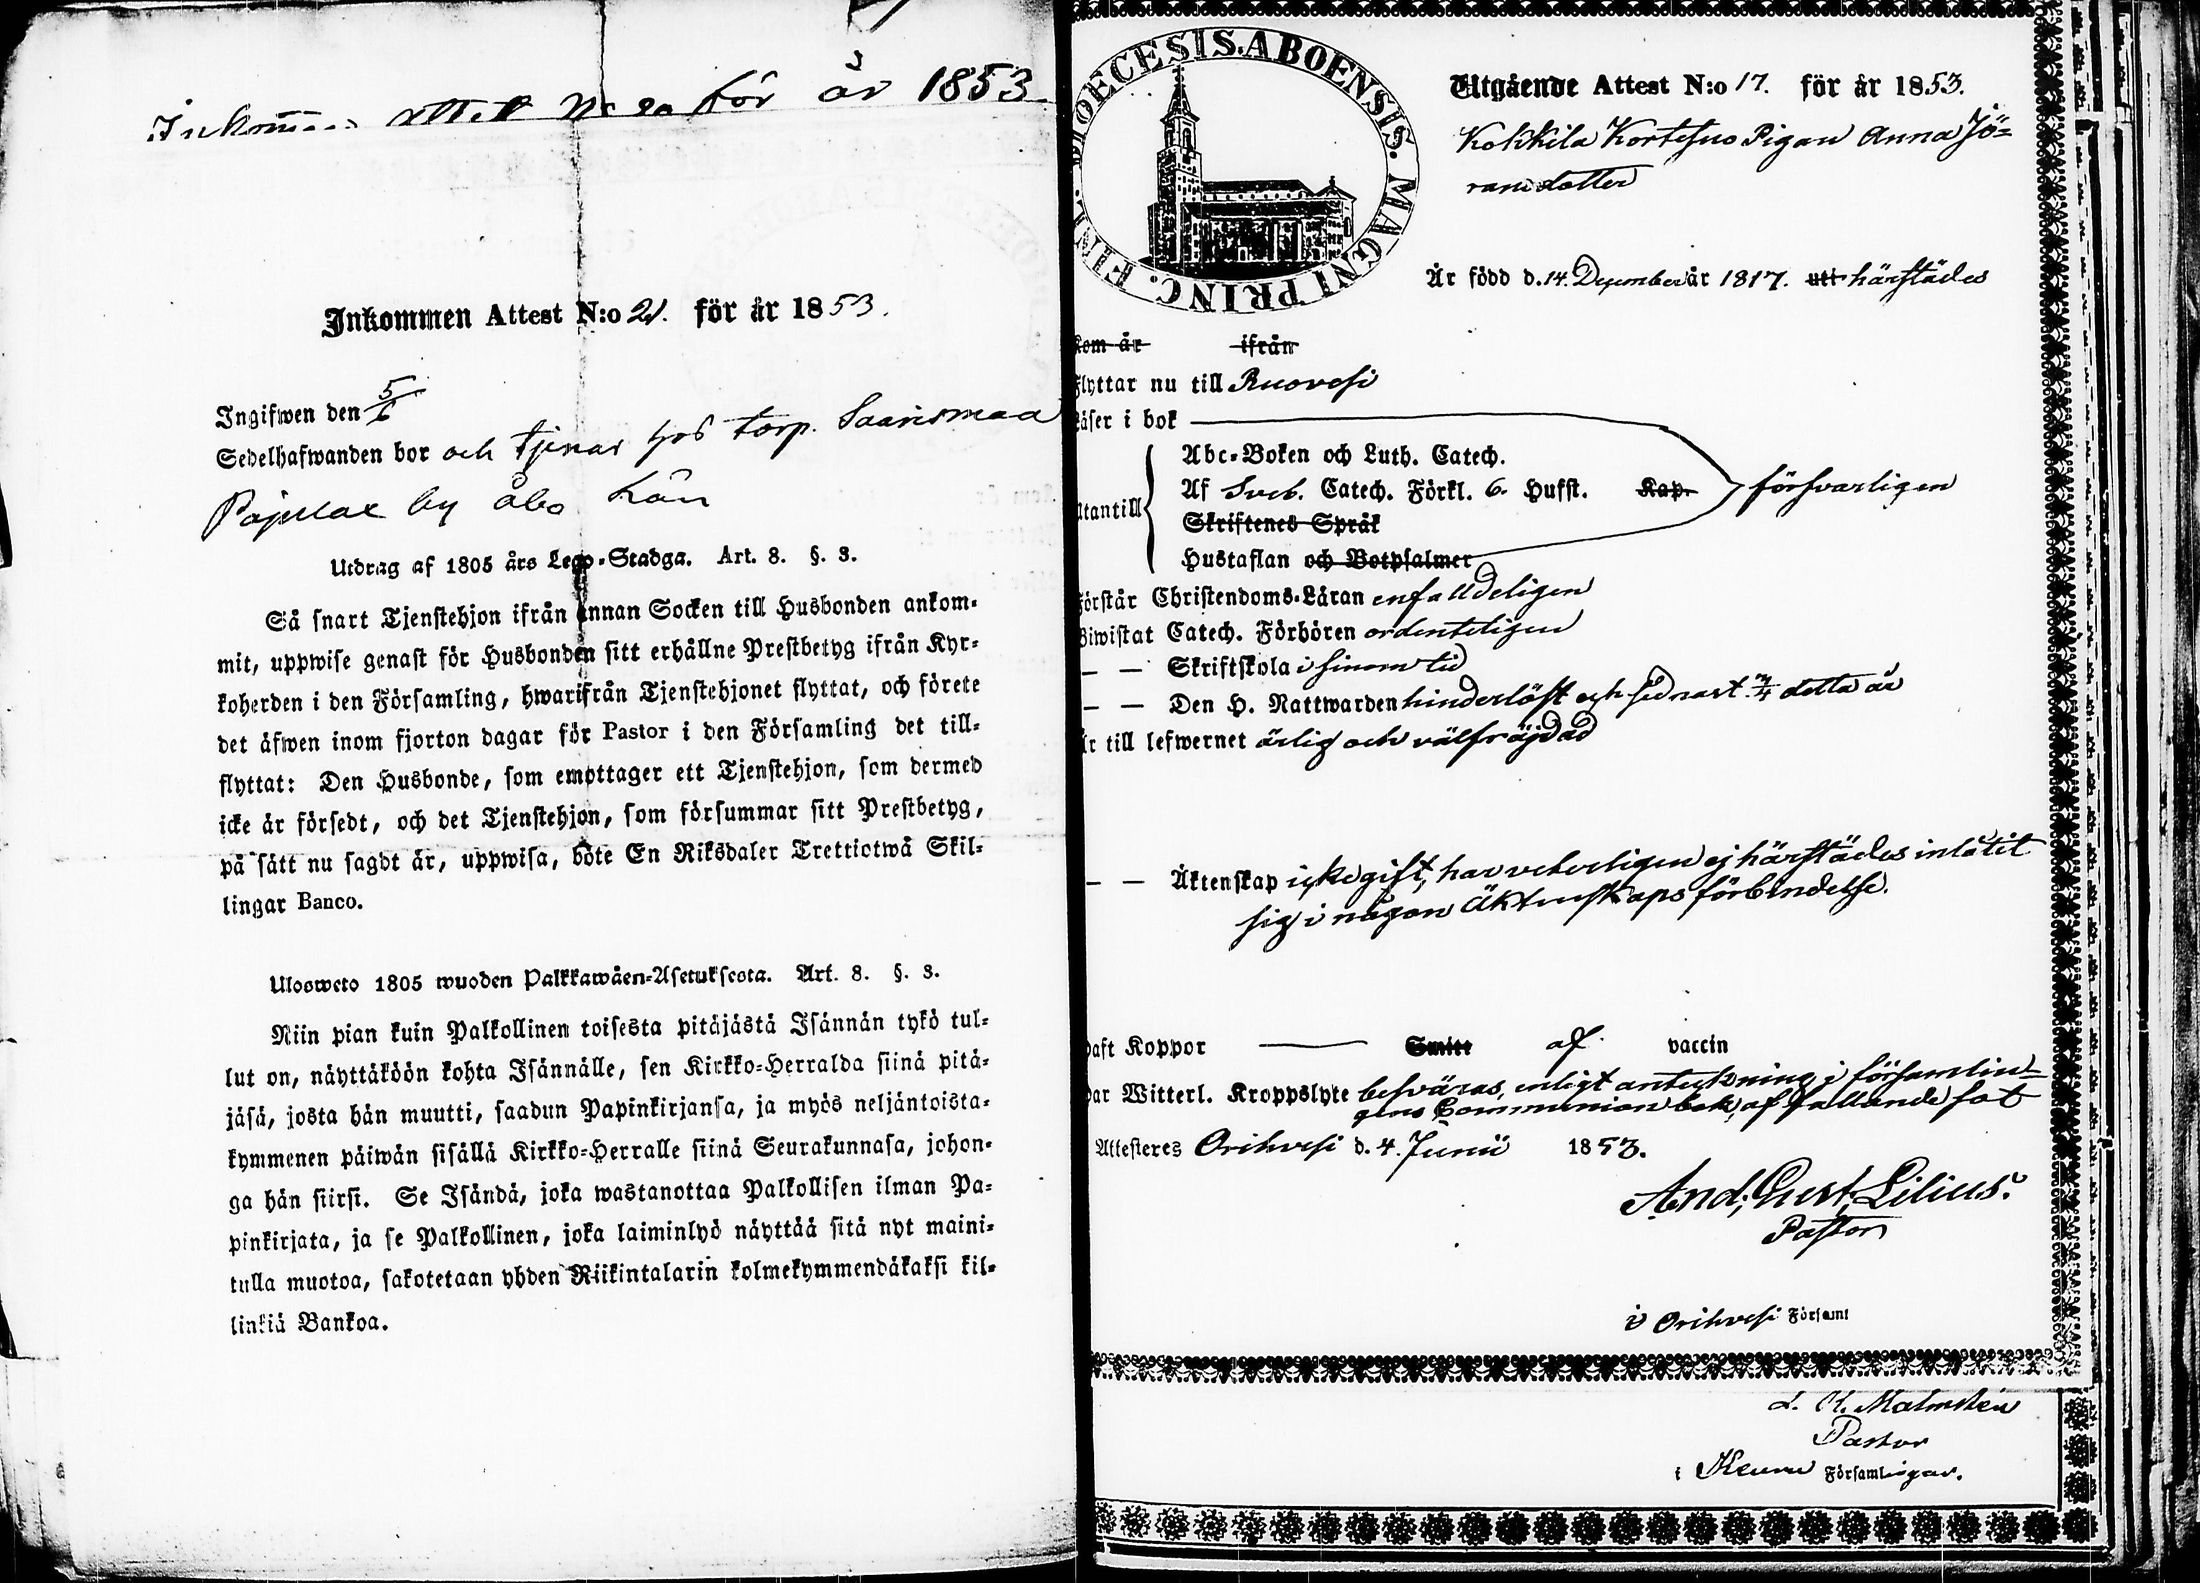 Inkommen attest No 20 för år 1853
Inkommen Attest N:o 21. för år 1853.
Ingifwen den 5/6
Sedelhafwanden bor och tjenar hos torp. Saarismaa
Pajulax by åbo Län
Utdrag af 1805 års Lego-Stadga. Art. 8. §. 3.
Så snart Tjenstehjon ifrån annan Socken till Husbonden ankom-
mit, uppwise genast för Husbonden sitt erhållne Prestbetyg ifrån Kyr-
koherden i den Församling, hwarifrån Tjenstehjonet flyttat, och förete
det äfwen inom fjorton dagar för Pastor i den Församling det till-
flyttat: Den Husbonde, som emottager ett Tjenstehjon, som dermed
icke är försedt, och det Tjenstehjon, som försummar sitt Prestbetyg,
på sätt nu sagdt är, uppwisa, böte En Riksdaler Trettiotwå Skil-
lingar Banco.
Ulosweto 1805 wuoden Palkkawäen-Asetuksesta. Art. 8. §. 3.
Niin pian kuin Palkollinen toisesta pitäjästä Isännän tykö tul-
lut on, näyttäköön kohta Isännälle, sen Kirkko-Herralda siinä pitä-
jäsä, josta hän muutti, saadun Papinkirjansa, ja myös neljäntoista-
kymmenen päiwän sisällä Kirkko-Herralle siinä Seurakunnasa, johon-
ga hän siirsi. Se Isändä, joka wastanottaa Palkollisen ilman Pa-
pinkirjata, ja se Palkollinen, joka laiminlyö näyttää sitä nyt maini-
tulla muotoa, sakotetaan yhden Riikintalarin kolmekymmendäkaksi kil-
linkiä Bankoa.
DIOECESIS. ABOENSIS. MAGNI PRINC. FINL.
Utgående Attest N:o 17. för år 1853.
Kokkila Kortesuo Pigan Anna Jö=
ransdotter
Är född d. 14. December år 1817. uti härstädes
Kom år ifrån
Flyttar nu till Ruovesi
Läser i bok
Abc-Boken och Luth. Catech.
Af Sveb. Catech. Förkl. 6. Hufst. Kap. försvarligen
Utantill
Skriftenes Språk
Hustaflan och Botpsalmer
Förstår Christendoms-Läran enfalldeligen
Biwistat Catech. Förhören ordenteligen
— — Skriftskola i sinom tid
— — Den H. Nattwarden hinderlöst och sednast /4 detta år
Är till lefwernet ärlig och välfräjdad
— — Äktenskap icke gift, har veterligen ej härstädes inlåtit
sig i någon Äktenskaps förbindelse.
Haft Koppor Smitt af vaccin
Har Witterl. Kroppslyte besväras, enligt anteckning i församlin=
gens Communion bok, af fallande sot
Attesteres Orihvesi d. 4. Junii 1853.
And. Gust. Lilius.
Pastor
i Orihvesi Församl
L. H. Malmstén
Pastor
i Keuru Församlingar.